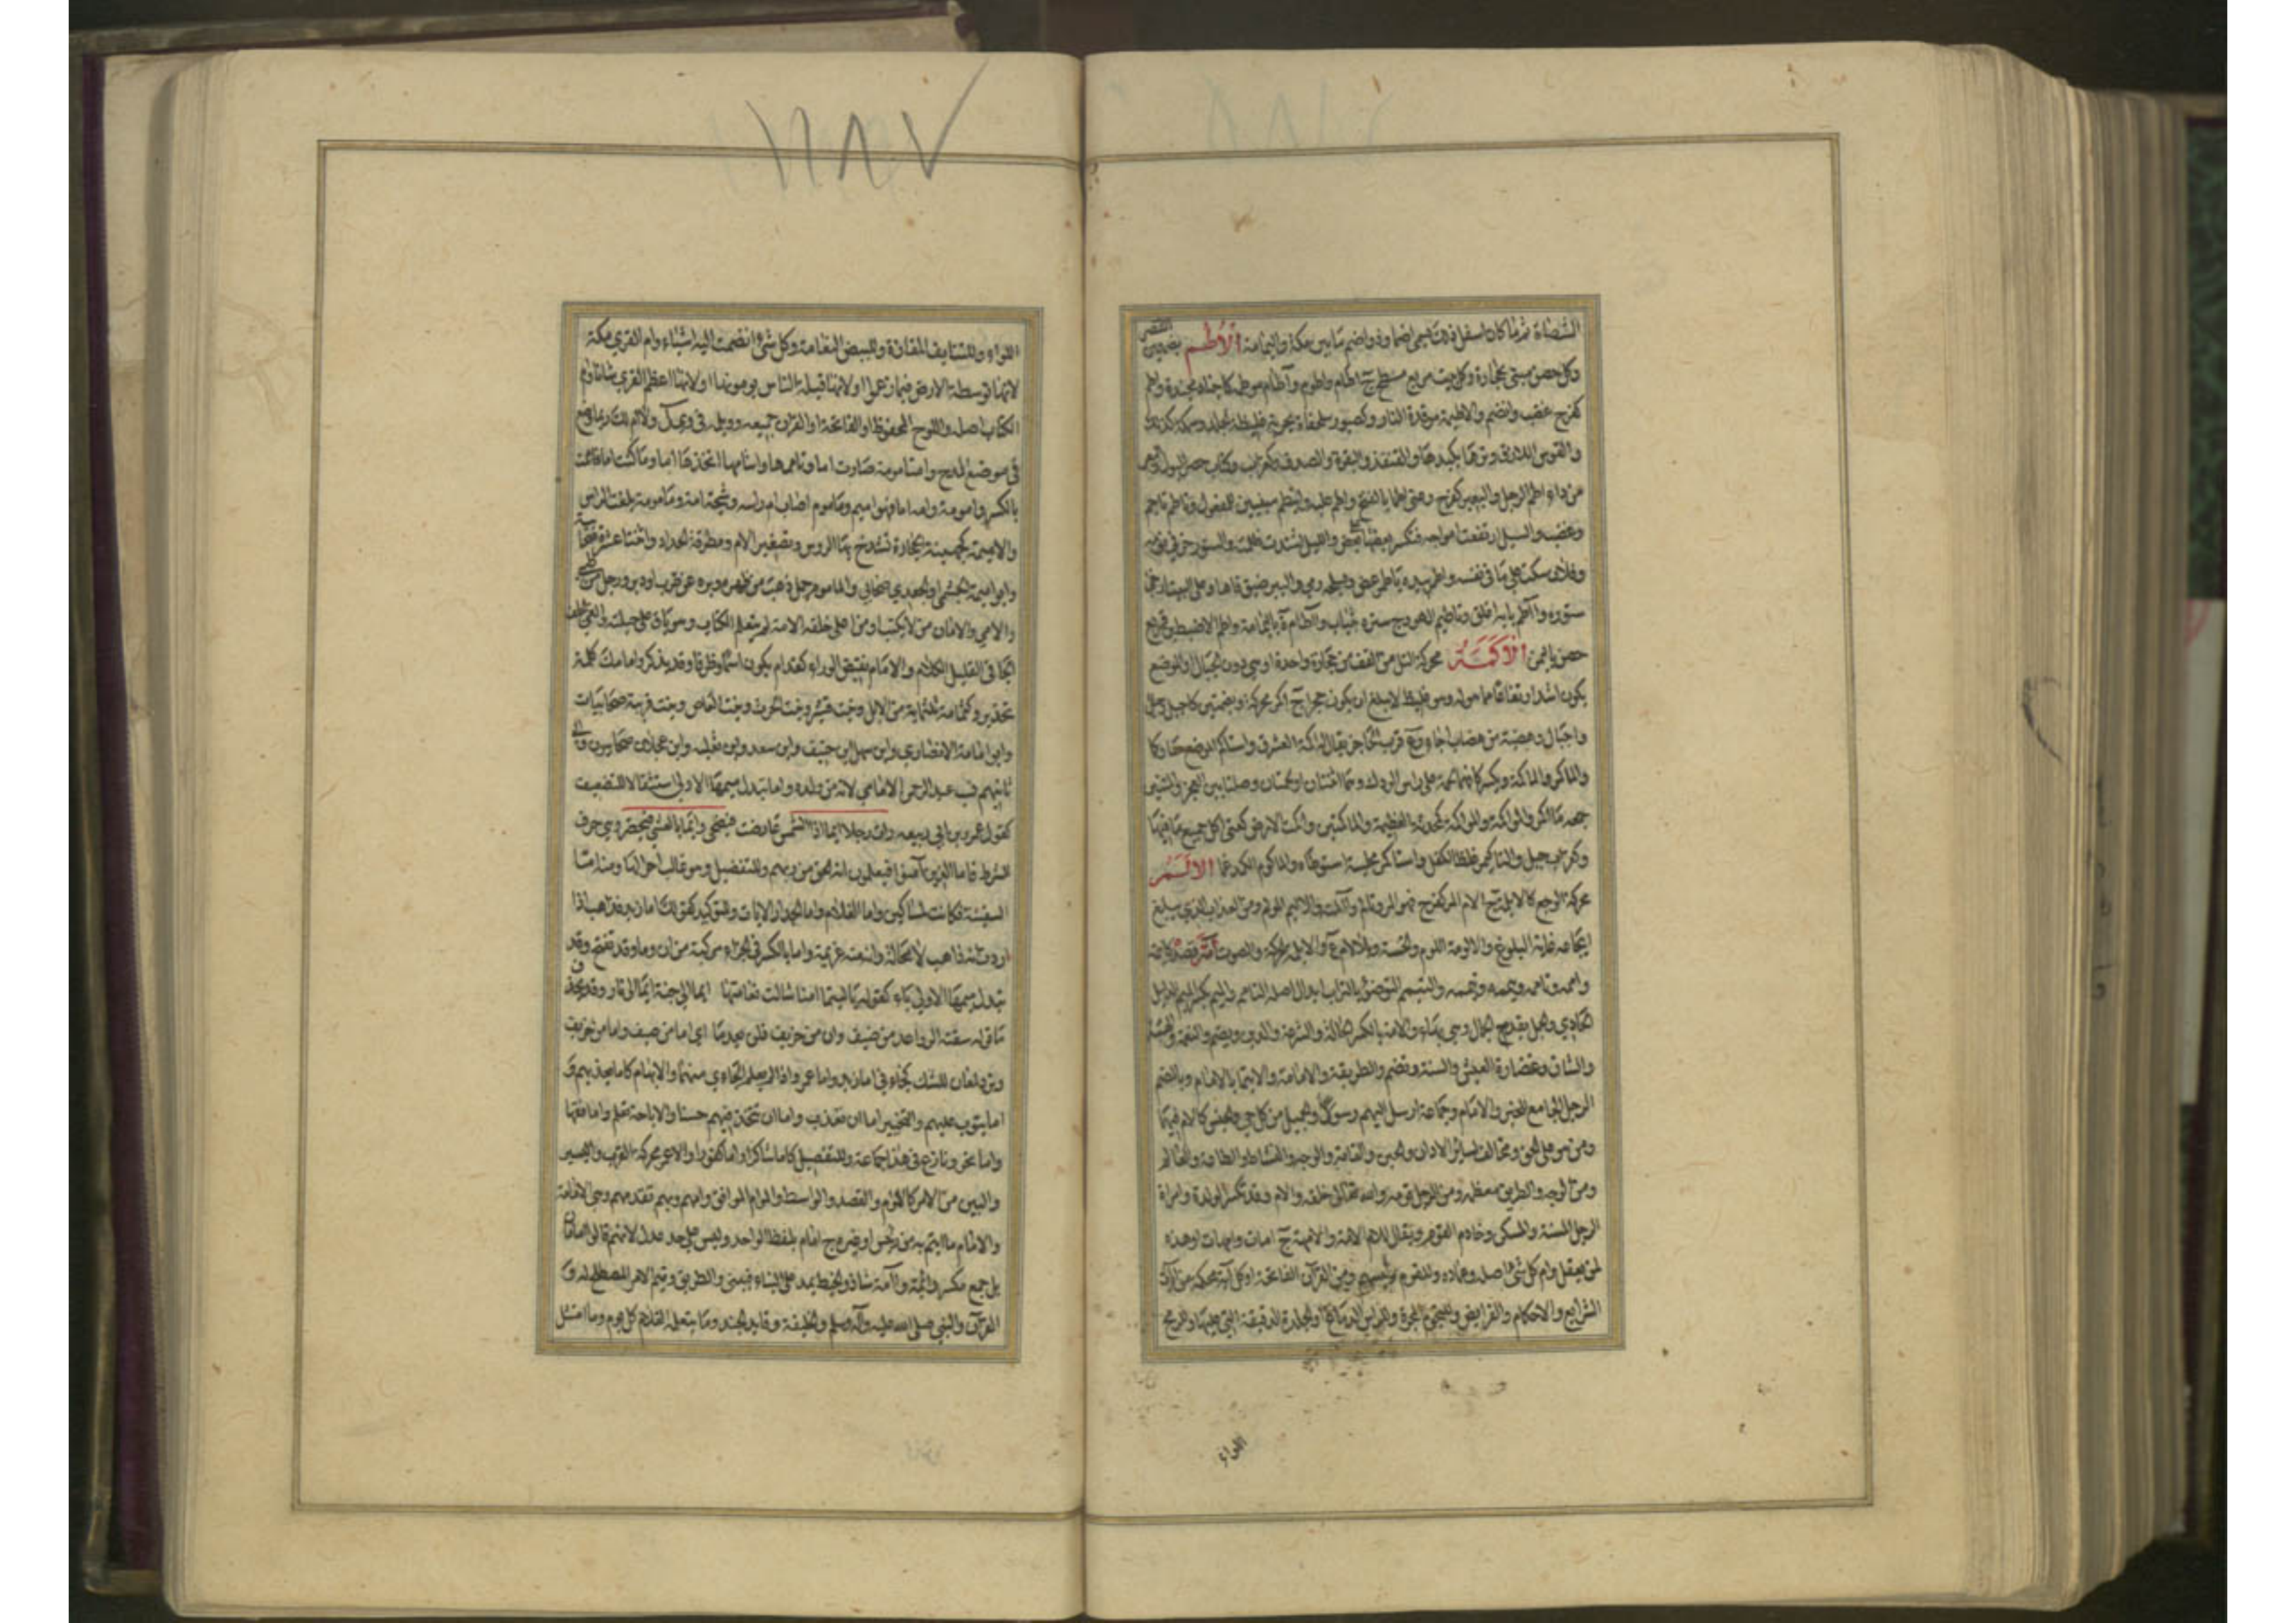 الشظاة ثم ما كان اسفل ذلك يسمى اضما وذو اضم ما بين مكة واليمامة الأطم بضمتين القصر
وكل حصن مبنى بحجارة وكل بيت مربع مسطح ج آطام واطوم وآطام موطمة كاجناد مجندة واطم
كفرح غضب وانضم والاطيمة موقدة النار وكصبور سلحفاة بحرية غليظة الجلد وسمكة كذلك
والقوس اللازق وترها بكبدها والقنفذ والبقرة والصدف وكغراب وكتاب حصر البول والبعر
من داء اطم الرجل والبعير كفرح وعنى اطما بالفتح واطم عليه وايتطم مبنيين للمفعول وتاطم تاجم
وغضب والسيل ارتفعت امواجه فتكسر بعضها على بعض والليل اشتدت ظلمته والسنور خر في نومه
وفلان سكت على ما في نفسه واطم بيده ياطم عض والبير ضيق فاها وعلى البيت ارخى
ستوره وااطم بابه اغلق وتاطيم الهودج ستره بثياب والآطام ة باليمامة واطم الاضبط بن قريع
حصن باليمن الأكمة محركة التل من القف من حجارة واحدة او هي دون الجبال او الموضع
يكون اشد ارتفاعا مما حوله وهو غليظ لا يبلغ ان يكون حجرا ج اكم محركة وبضمتين كاجبل
واجبال وهضبة من هضاب اجاء وع قرب الحاجز يقال له اكمة العشرق واستاكم الموضع صار اكما
والماكم والماكمة ويكسر كافهما لحمة على راس الورك وهما اثنتان او لحمتان وصلتا بين العجز والمتنين
جمعه ماكم والمواكمة والمؤكمة كمحدثة العظيمة الماكمتين واكمت الارض كعنى اكل جميع ما فيها
وكغراب جبل والتاكيم غلظ الكفل واستاكم مجلسه استوطاه والماكوم الكمد غما الألم
محركة الوجع كالايلمة ج آلام الم كفرح فهو الم وتالم وآلمته والاليم المؤلم ومن العذاب الذي يبلغ
ايجاعه غاية البلوغ والالومة اللوم والخسة وبلا لام ع والايلمة الحركة والصوت أمه قصده كايتمه
واممه وتاممه ويممه وتيممه والتيمم التوضؤ بالتراب ابدال اصله التامم والميم بكسر الميم الدليل
الهادي والجمل يقدم الجمال وهي بهاء والامة بالكسر الحالة والشرعة والدين ويضم والنعمة والهيئة
والشان وغضارة العيش والسنة وتضم والطريقة والامامة والايتمام بالامام وبالضم
الرجل الجامع للخير والامام وجماعة ارسل اليهم رسول والجيل من كل حي والجنس كالام فيهما
ومن هو على الحق ومخالف لسائر الاديان والحين والقامة والوجه والنشاط والطاعة والعالم
ومن الوجه والطريق معظمه ومن الرجل قومه ولله تعالى خلقه والام وقد تكسر الوالدة وامراة
الرجل المسنة والمسكن وخادم القوم ويقال للام الامة والامهة ج امات وامهات او هذه
لمن يعقل وام كل شيء اصله وعماده وللقوم رئيسهم ومن القرآن الفاتحة او كل آية محكمة من آيات
الشرايع والاحكام والفرايض وللنجوم المجرة وللراس الدماغ او الجلدة الدقيقة التي عليها وللرمح
اللواء
اللواء وللتنايف المفازة وللبيض النعامة وكل شيء انضمت اليه اشياء وام القرى مكة
لانها توسطت الارض فيما زعموا او لانها قبلة الناس يؤمونها او لانها اعظم القرى شانا وام
الكتاب اصله واللوح المحفوظ او الفاتحة او القرآن جميعه وويلمه في ويل ولا ام لك ربما وضع
في موضع المدح وامت امومة صارت اما وتاممها واستامها اتخذها اما وما كنت اما فاممت
بالكسر وامومة وامه اما فهو اميم وماموم اصاب ام راسه وشجة آمة ومامومة بلغت ام الراس
والاميمة كجهينة الحجارة تشدخ بها الروس وتصغير الام ومطرقة الحداد واثنتا عشرة صحابية
وابو اميمة الجشمي او الجعدي صحابي والماموم رجل ذهب من ظهره وبره عن ضرب او دبر ورجل من طى
والامي والامان من لا يكتب او من على خلقه الامة لم يتعلم الكتاب وهو باق على جبلته والغبي الجلف
الجافي القليل الكلام والامام نقيض الوراء كقدام يكون اسما وظرفا وقد يذكر وامامك كلمة
تحذير وكثمامة ثلثماية من الابل وبنت قشير وبنت الحرث وبنت العاص وبنت قريبة صحابيات
وابو امامة الانصاري وابن سهل بن حنيف وابن سعد وابن ثعلبة وابن عجلان صحابيون والى
ثانيهم نسب عبد الرحمن الامامي لانه من ولده واما تبدل ميمها الاولى استثقالا للتضعيف
كقول عمر بن ابي ربيعة رات رجلا ايما اذا الشمس عارضت فيضحى وايما بالعشي فيخصر وهي حرف
الشرط فاما الذين آمنوا فيعلمون انه الحق من ربهم وللتفصيل وهو غالب احوالها ومنه اما
السفينة فكانت لمساكين واما الغلام واما الجدار الايات وللتوكيد كقولك اما زيد فذاهب اذا
اردت انه ذاهب لا محالة وانه منه عزيمة واما بالكسر في الجزاء مركبة من ان وما وقد تفتح وقد
تبدل ميمها الاولى ياء كقوله يا ليتما امنا شالت نعامتها ايما الى جنة ايما الى نار وقد تحذف
ما قوله سقته الرواعد من صيف وان من خريف فلن يعدما اي اما من صيف واما من خريف
وترد لمعان للشك كجاءني اما زيد واما عمرو اذا لم يعلم الجائي منهما والابهام كاما يعذبهم و
اما يتوب عليهم والتخيير اما ان تعذب واما ان تتخذ فيهم حسنا والاباحة تعلم اما فقها
واما نحوا ونازع في هذا جماعة وللتفصيل كاما شاكرا واما كفورا والامم محركة القرب واليسير
والبين من الامر كالمؤام والقصد والوسط والمؤام الموافق وامهم وبهم تقدمهم وهي الامامة
والامام ما ايتم به من رئيس او غيره ج امام بلفظ الواحد وليس على حد عدل لانهم قالوا امامان
بل جمع مكسر وائمة وآمة شاذ والخيط يمد على البناء فيبنى والطريق وقيم الامر المصلح له و
القرآن والنبي صلى الله عليه وآله وسلم والخليفة وقايد الجند وما يتعلمه الغلام كل يوم وما امتثل